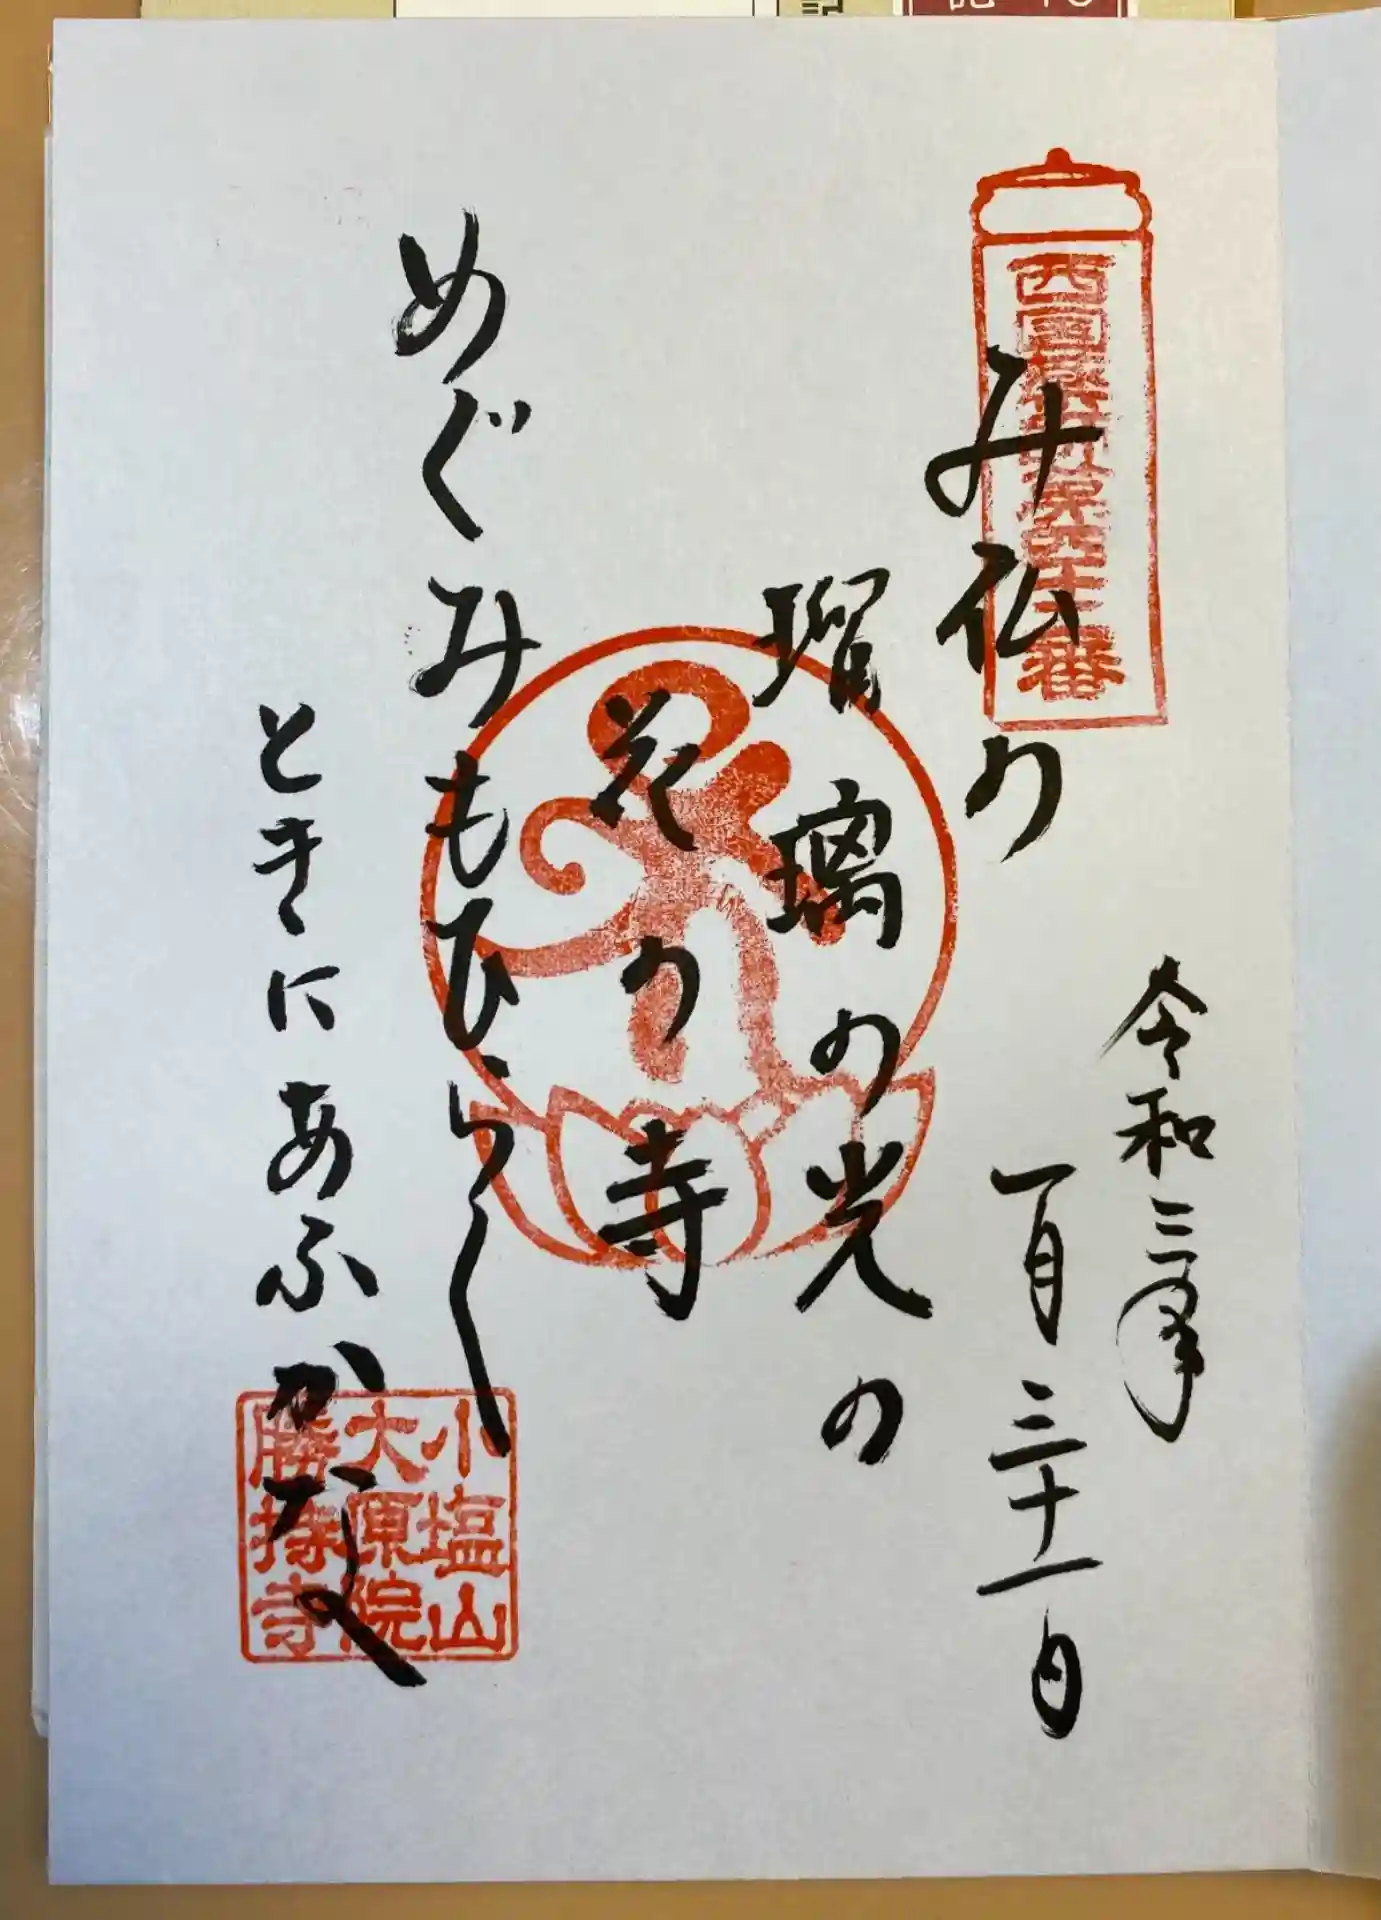 令和三年
一月三十一日
み仏の
瑠璃の光の
花の寺
めぐみもひらく
ときにあふかな
西国薬師第四十二番
小塩山
大原院
勝持寺